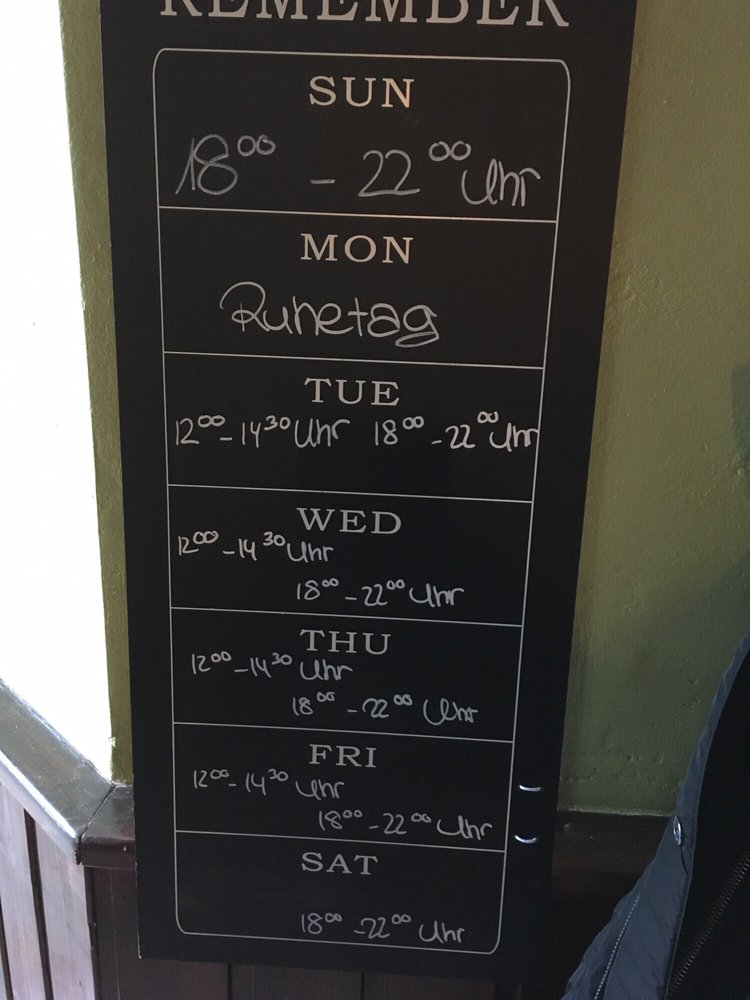 REMEMBER
SUN
18⁰⁰ - 22⁰⁰ Uhr
MON
Ruhetag
TUE
12⁰⁰-14³⁰ Uhr 18⁰⁰-22⁰⁰ Uhr
WED
12⁰⁰-14³⁰ Uhr
18⁰⁰-22⁰⁰ Uhr
THU
12⁰⁰-14³⁰ Uhr
18⁰⁰-22⁰⁰ Uhr
FRI
12⁰⁰-14³⁰ Uhr
18⁰⁰-22⁰⁰ Uhr
SAT
18⁰⁰-22⁰⁰ Uhr